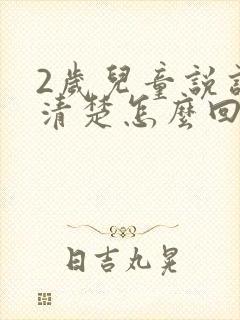 2歲兒童說
清楚怎麼回
日吉丸晃